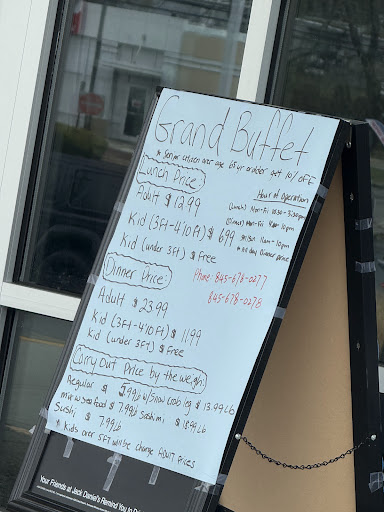 Grand Buffet
* Senior citizen over age 65 or order get 10% OFF
Lunch Price
Adult $ 12.99
Kid (3Ft-4'10Ft) $ 6.99
Kid (under 3Ft) $ Free
Hour of operation
(Lunch) Mon-Fri 10:30-3:30pm
(Dinner) Mon-Fri
Sat/Sun 11am-10pm
* All day Dinner price
Phone: 845-678-0277
845-678-0278
Dinner Price
Adult $ 23.99
Kid (3Ft-4'10Ft) $ 11.99
Kid (under 3Ft) $ Free
Carry Out Price by the weigh
Regular $ 5.99lb w/Snow Crab leg $ 13.99 Lb
Mix w/ Seafood $ 7.99lb Sashimi $ 18.99 Lb
Sushi $ 7.99lb
* Kids over 5FT will be charge ADULT prices
Your Friends at Jack Daniel's Remind You to